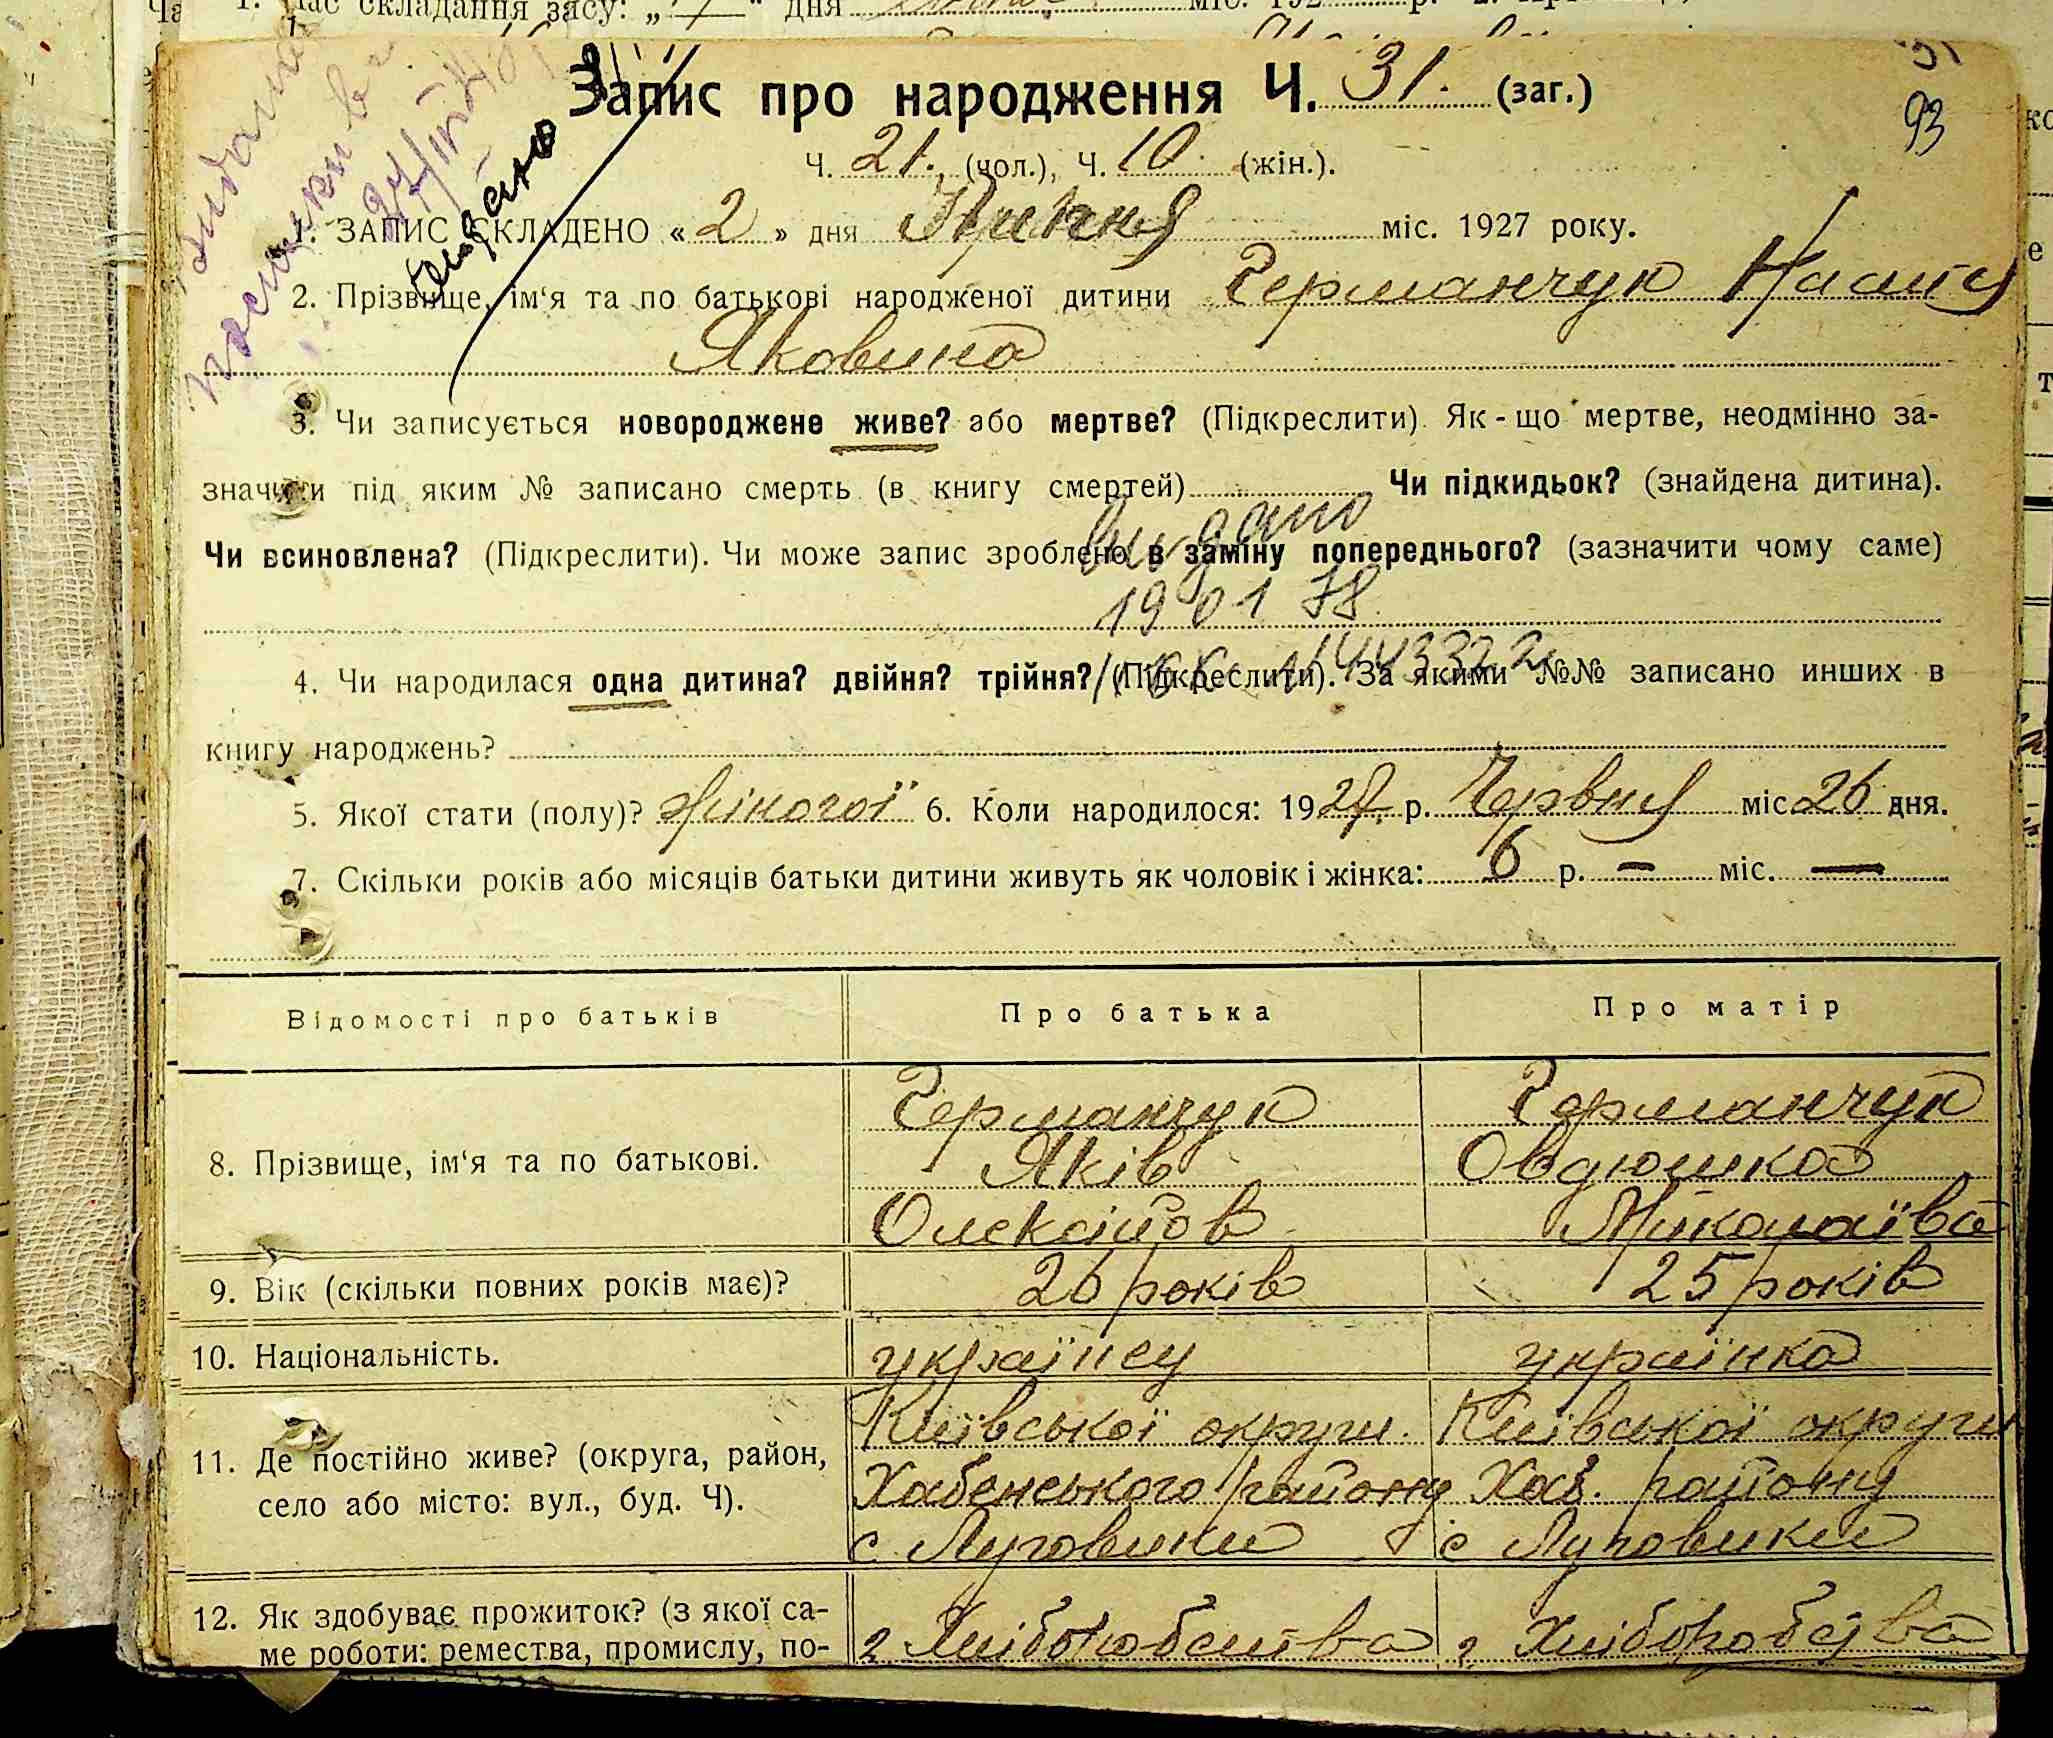 Запис про народження Ч. 31. (заг.)
93
Ч. 21. (чол.), Ч. 10. (жін.).
1. ЗАПИС СКЛАДЕНО « 2 » дня Липня міс. 1927 року.
видано
2. Прізвище, ім'я та по батькові народженої дитини Германчук Настя
Яковина
3. Чи записується новороджене живе? або мертве? (Підкреслити). Як-що мертве, неодмінно за-
значити під яким № записано смерть (в книгу смертей) Чи підкидьок? (знайдена дитина).
видано
Чи всиновлена? (Підкреслити). Чи може запис зроблено в заміну попереднього? (зазначити чому саме)
19 01 78
4. Чи народилася одна дитина? двійня? трійня? (Підкреслити). За якими №№ записано инших в
книгу народжень?
5. Якої стати (полу)? жіночої 6. Коли народилося: 1927. р. Червня міс. 26 дня.
7. Скільки років або місяців батьки дитини живуть як чоловік і жінка: 6 р. — міс. —
Відомості про батьків Про батька Про матір
8. Прізвище, ім'я та по батькові.
Германчук Германчук
Яків Овдюшка
Олексійов Миколаївa
9. Вік (скільки повних років має)? 26 років 25 років
10. Національність. українец українка
11. Де постійно живе? (округа, район,
село або місто: вул., буд. Ч).
Київської округи. Київської округи
Хабенського району Хаб. району
с. Луговики с Луговики
12. Як здобуває прожиток? (з якої са-
ме роботи: ремества, промислу, по-
з Хліборобства з Хліборобства